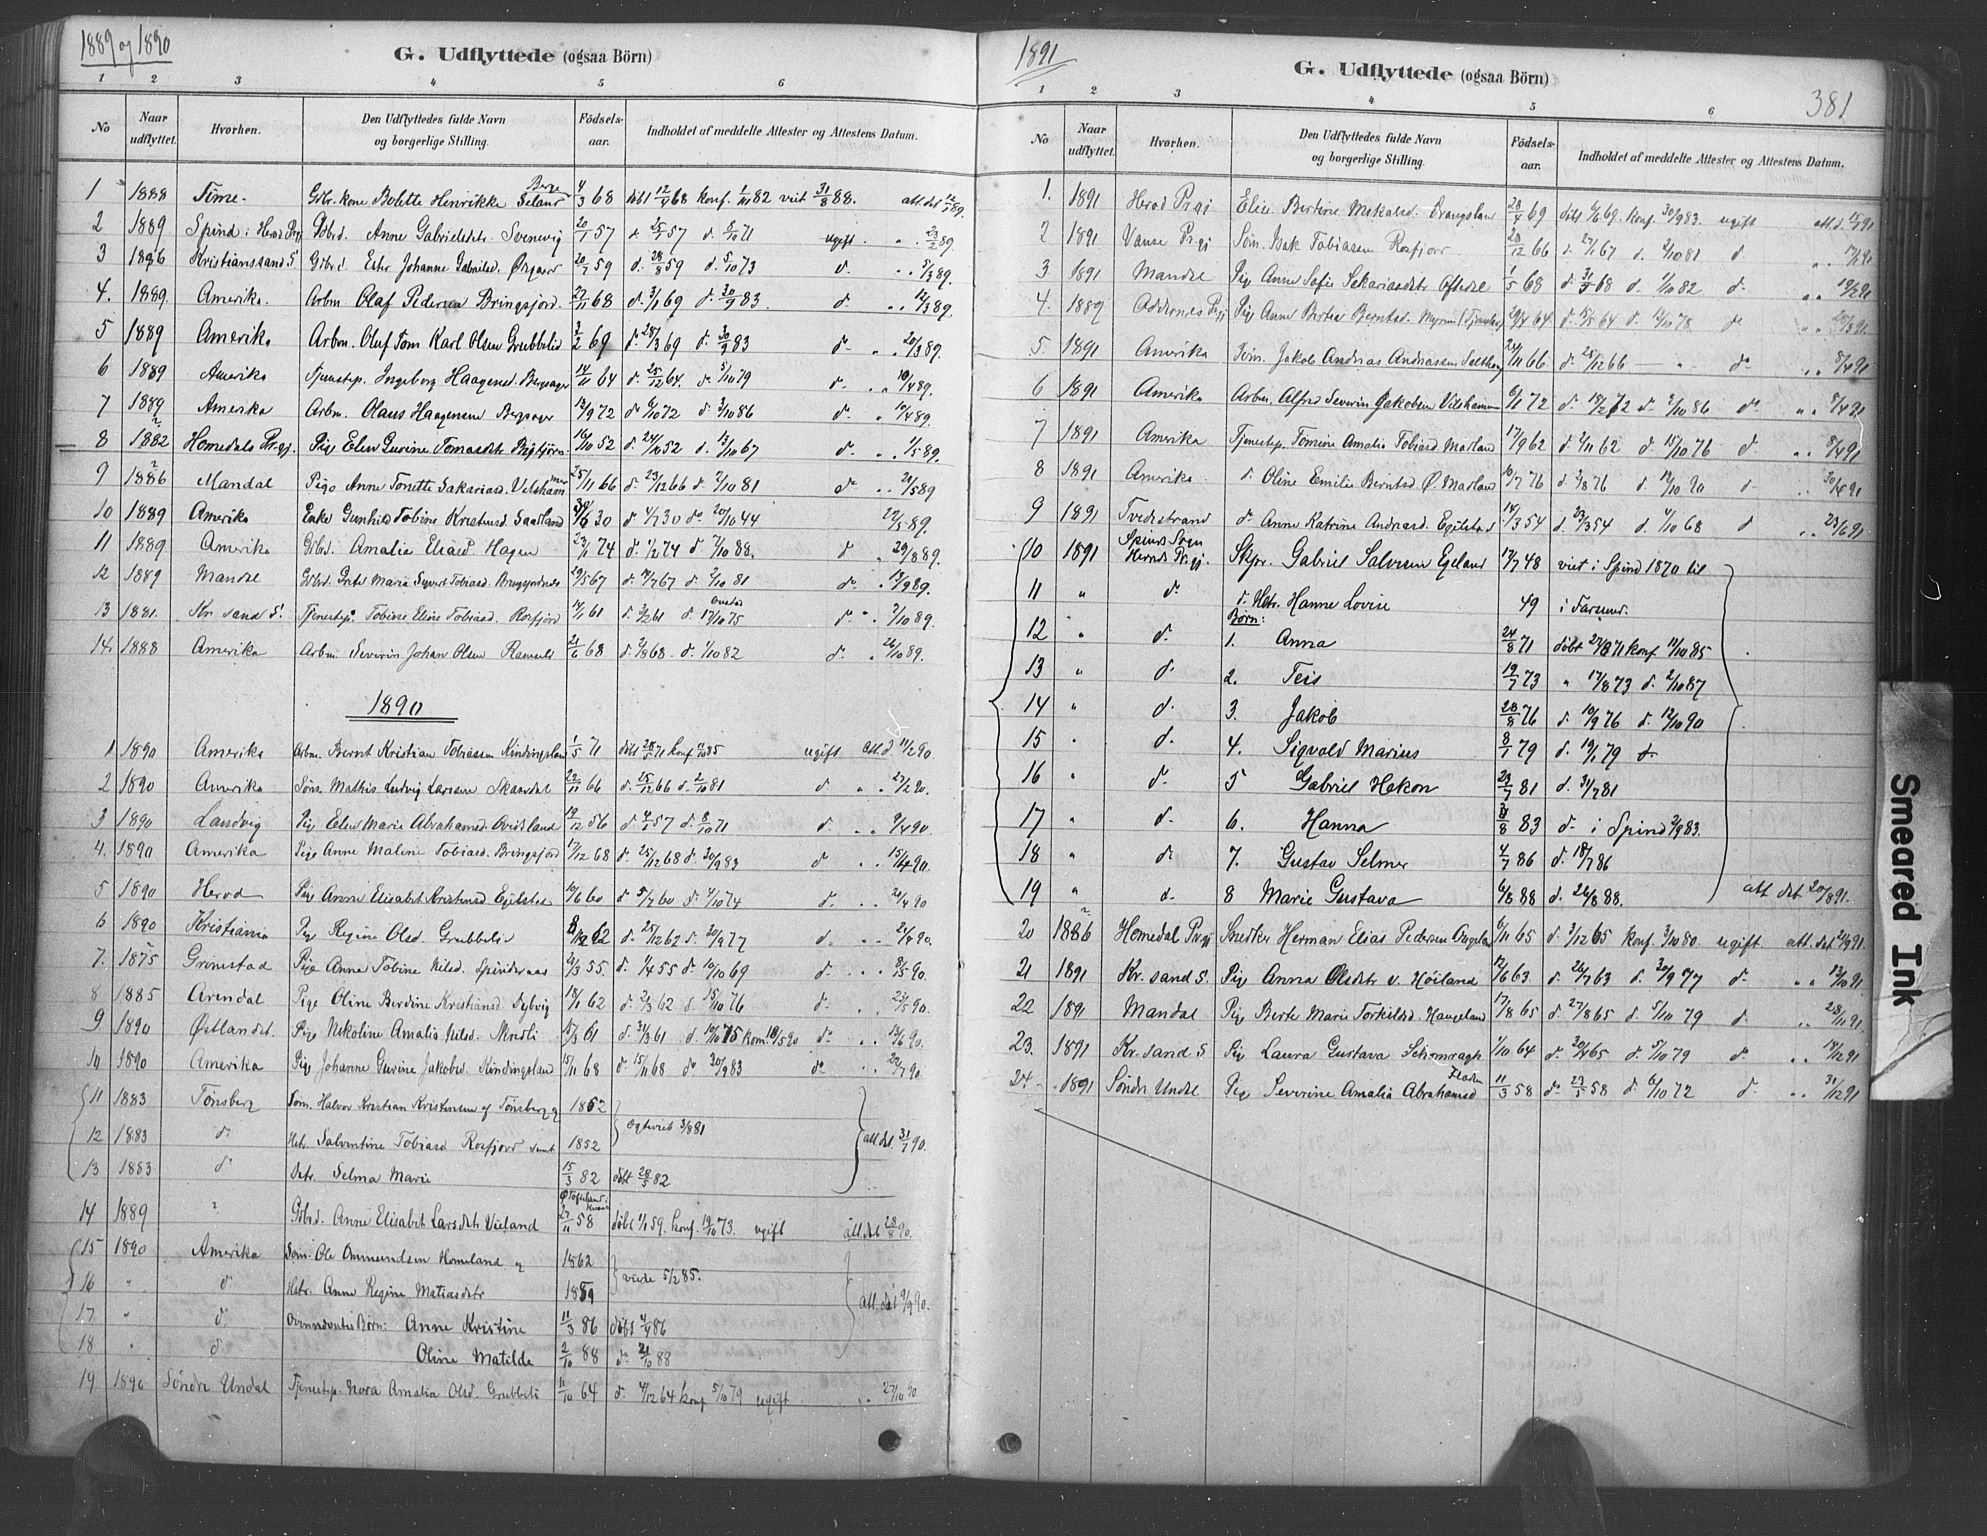 1889 og 1890
G. Udflyttede (ogsaa Börn)
1 2 3 4 5 6
No Naar udflyttet. Hvorhen. Den Udflyttedes fulde Navn og borgerlige Stilling. Födsels-aar. Indholdet af meddelte Attester og Attestens Datum.
1 1888 Time. Gbr. kone Bolette Henrikke Berge Seland 4/3 68 döbt 12/4 68 konf. 82 viet 31/8 88. att. det 89.
2 1889 Spind i Herod Prgj Gbrd. Anne Gabrielsdtr. Svenevig 20/1 57 d. 25/1 57 d. 8/10 71 ugift 23/2 89
3 Kristianssand S Gbrd Ester Johanne Gabrielsd. 20/7 59 d. 28/8 59 d. 5/10 73 d. 8/3 89.
4. 1889. Amerika. Arbm. Olaf Pedersen Bringsjord 22/11 68 d. 3/1 69 d. 30/9 83 d. 12/3 89.
5 1889 Amerika Arbm. Oluf Tom Karl Olsen Grubbelid 3/2 69 d. 28/3 69 d. 30/9 83 d. 20/3 89.
6 1889 Amerika Tjenestep. Ingeborg Haagensd. Bergsager 14/11 64 d. 25/12 64. d. 5/10 79 d. 10/4 89.
7 1889 Amerika Arbm. Olaus Haagensen Bergsager 12/9 72 d. 6/10 72 d. 3/10 86 d. 10/4 89.
8 1882 Homedals Prgj. Pige Elen Gurine Tomasdtr. 16/10 52 d. 24/10 52 d. 13/10 67 d. 1/5 89.
9 1886 Mandal Pige Anne Tonette Sakariasd. Velshammer 25/11 66 d. 23/12 66 d. 2/10 81 d. 21/5 89
10 1889 Amerika Enke Gunhild Tobine Knutsd. 30 d. 4/7 30 d. 20/10 44 22/5 89.
11 1889. Amerika Gbrd. Amalie Eliasd Hagen 23/1 74 d. 1/2 74 d. 7/10 88. d. 29/8 89.
12 1889 Mandal Gbrd. Grete Marie Syvert Tobiasd. 29/5 67 d. 14/7 67 d. 2/10 81 d. 89.
13 1881. Kr. sand S. Tjenestep. Tobine Eline Tobiasd. Rosfjord 14/1 61 d. 3/2 61 d. 17/10 75 d. 3/10 89.
14. 1888 Amerika Arbm. Severin Johan Olsen 21/6 68 d. 2/8 68. d. 1/10 82 d. 26/10 89.
1890
1 1890 Amerika Arbm. Bernt Kristian Tobiassen Kindingsland 1/5 71 döbt 28/5 71 konf. 85 ugift att. d. 11/2 90
2 1890 Amerika Söm. Mathis Ludvig Larsen Skaardal 22/11 66 d. 25/12 66 d. 2/10 81 d. 27/2 90.
3 1890 Landvig Pig. Elen Marie Abrahamsd. 19/12 56 d. 57 d. 8/10 71 d. 9/4 90.
4. 1890. Amerika Pige Anne Malene Tobiasd. Bringsjord 17/12 68 d. 25/12 68 d. 30/9 83 d. 15/4 90.
5 1890 Herod Pig Anne Elisabet Kristensd Egilstad 10/6 60 d. 5/7 60 d. 4/10 74 d. 21/4 90
6 1890 Kristiania Pige Regine Olsd. Grubbelid 8/12 62 d. 25/12 62 d. 30/9 77 d. 90.
7. 1875 Grömstad Pige Anne Tobine Nilsd. Spindernaas 21/3 55. d. 1/4 55 d. 10/10 69 d. 8/5 90.
8 1885 Arendal Pige Oline Berdine Kristiansd. 18/1 62 d. 2/3 62 d. 15/10 76 d. 23/5 90.
9 1890 Østlandet. Pige Nikoline Amalia Nilsd. 15/3 61 d. 31/3 61 d. 10/10 75 kom. 18/5 90 d. 6 90.
10 1890 Amerika Pige Johanne Gurine Jakobsd. Kindingsland 15/11 68 d. 15/11 68 d. 30/9 83 d. 22/7 90.
11 1883 Tönsberg Söm. Halvor Kristian Kristensen af Tönsberg og 1852
12 1883 d. Hstr. Salventine Tobiasd Rosfjord samt 1852 egteviet 3/8 81 att. det. 31/7 90.
13 1883 d. Datr. Selma Marie 15/3 82 döbt 28/5 82
14 1889 ? Gbrd. Anne Elisabet Larsdtr. Vieland 27/11 58 döbt 1/1 59. konf. 19/10 73. ugift att. det 28/8 90.
15 1890 Amerika Söm. Ole Ommundsen Homeland og 1862
16 " d. Hstr. Anne Regine Matiasdtr 1859 viede 5/2 85. att. det 9/9 90.
17 " d. Ovennævntes Börn: Anne Kristine 11/3 86 döbt 4/4 86
18 " d Oline Matilde 2/10 88 d. 21/10 88
19. 1890 Söndre Undal Tjenestep. Nora Amalia Olsd. Grubbelid 11/10 64 d. 4/12 64 konf 5/10 79 ugift 27/10 90.
1891
G. Udflyttede (ogsaa Börn)
381
1 2 3 4 5 6
No Naar udflyttet. Hvorhen. Den Udflyttedes fulde Navn og borgerlige Stilling. Födsels-aar. Indholdet af meddelte Attester og Attestens Datum.
1. 1891 Herod Prgj Elise Bertine Mikalsd. 28/4 69 döbt 6/6 69. konf. 30/9 83. ugift att. d. 91
2 1891 Vanse Prgj Söm. Isak Tobiassen Rosfjord 28/12 66 d. 27/1 67 d. 2/10 81 d. 91
3 1891 Mandal Pig Anne Sofie Sakariasdtr. Oftedal 1/5 68 d. 31/5 68 d. 1/10 82 d. 91
4. 1889 Oddernes Prgj Pige Anne Bertea Berntsd. 29/4 64 d. 5/5 64 d. 78 d. 28/3 91
5 1891 Amerika Söm. Jakob Andreas Andreassen 24/11 66 d. 25/12 66 d. 8/4 91
6 1891 Amerika Arbm. Alfred Severin Jakobsen Velshammer 6/11 72 d. 18/2 72 d. 2/10 86 d. 8/4 91
7 1891 Amerika Tjenestep. Tomine Amalia Tobiasd Marland 17/9 62 d. 2/11 62 d. 15/10 76 d. 8/4 91
8 1891 Amerika. d. Oline Emilie Berntsd Ø. Marland 10/7 76 d. 3/8 76 d. 12/10 90 d. 30/4 91
9 1891 Tvedestrand d. Anne Katrine Andreasd. Egilstad 14/3 54 d. 23/3 54 d. 4/10 68 d 23/6 91
10 1891 Spinds Sogn Herods Prgj. Skipr. Gabriel Salvesen Egeland 17/7 48 viet i Spind 1870 til
11 " d. d. Hstr. Hanne Lovise 49 i Farsund.
Börn:
12 " d. 1. Anna 24/8 71 döbt 27/8 71 konf 11/10 85
13 " d. 2. Teis 19/7 73 " 17/8 73 d. 2/10 87
14 " d. 3. Jakob 28/8 76 d. 10/9 76 d. 12/10 90
15 " d. 4. Sigvald Marius 8/1 79 d. 19/1 79
16 " d. 5 Gabriel Hekon 23/7 81 d. 31/7 81
17 " d. 6. Hanna 8 83 d. i Spind 2/9 83.
18 " d. 7. Gustav Selmer 4/7 86 d. 18/7 86
19 " d. 8 Marie Gustava 6/8 88 d. 26/8 88. att. det 20/8 91.
20 1886 Homedal Prgj Snedker Herman Elias Pedersen 6/11 65 d. 3/12 65 konf. 3/10 80. ugift att. det 91.
21 1891 Kr. sand S. Pig Anna Olsdtr v. Höiland 12/6 63 d. 26/7 63 d. 30/9 77 d. 13/10 91
22 1891 Mandal Pig Berte Marie Torkilsd. Haugeland 17/8 65 d. 27/8 65 d. 5/10 79 d. 28/11 91.
23. 1891 Kr. sand S Pig Laura Gustava 1/10 64 d. 30/4 65 d. 5/10 79 d. 14/12 91
24 1891 Söndr Undal Pig Severine Amalia Abrahamsd 11/3 58 d. 23/5 58 d. 6/10 72 d. 31/12 91
Smeared Ink